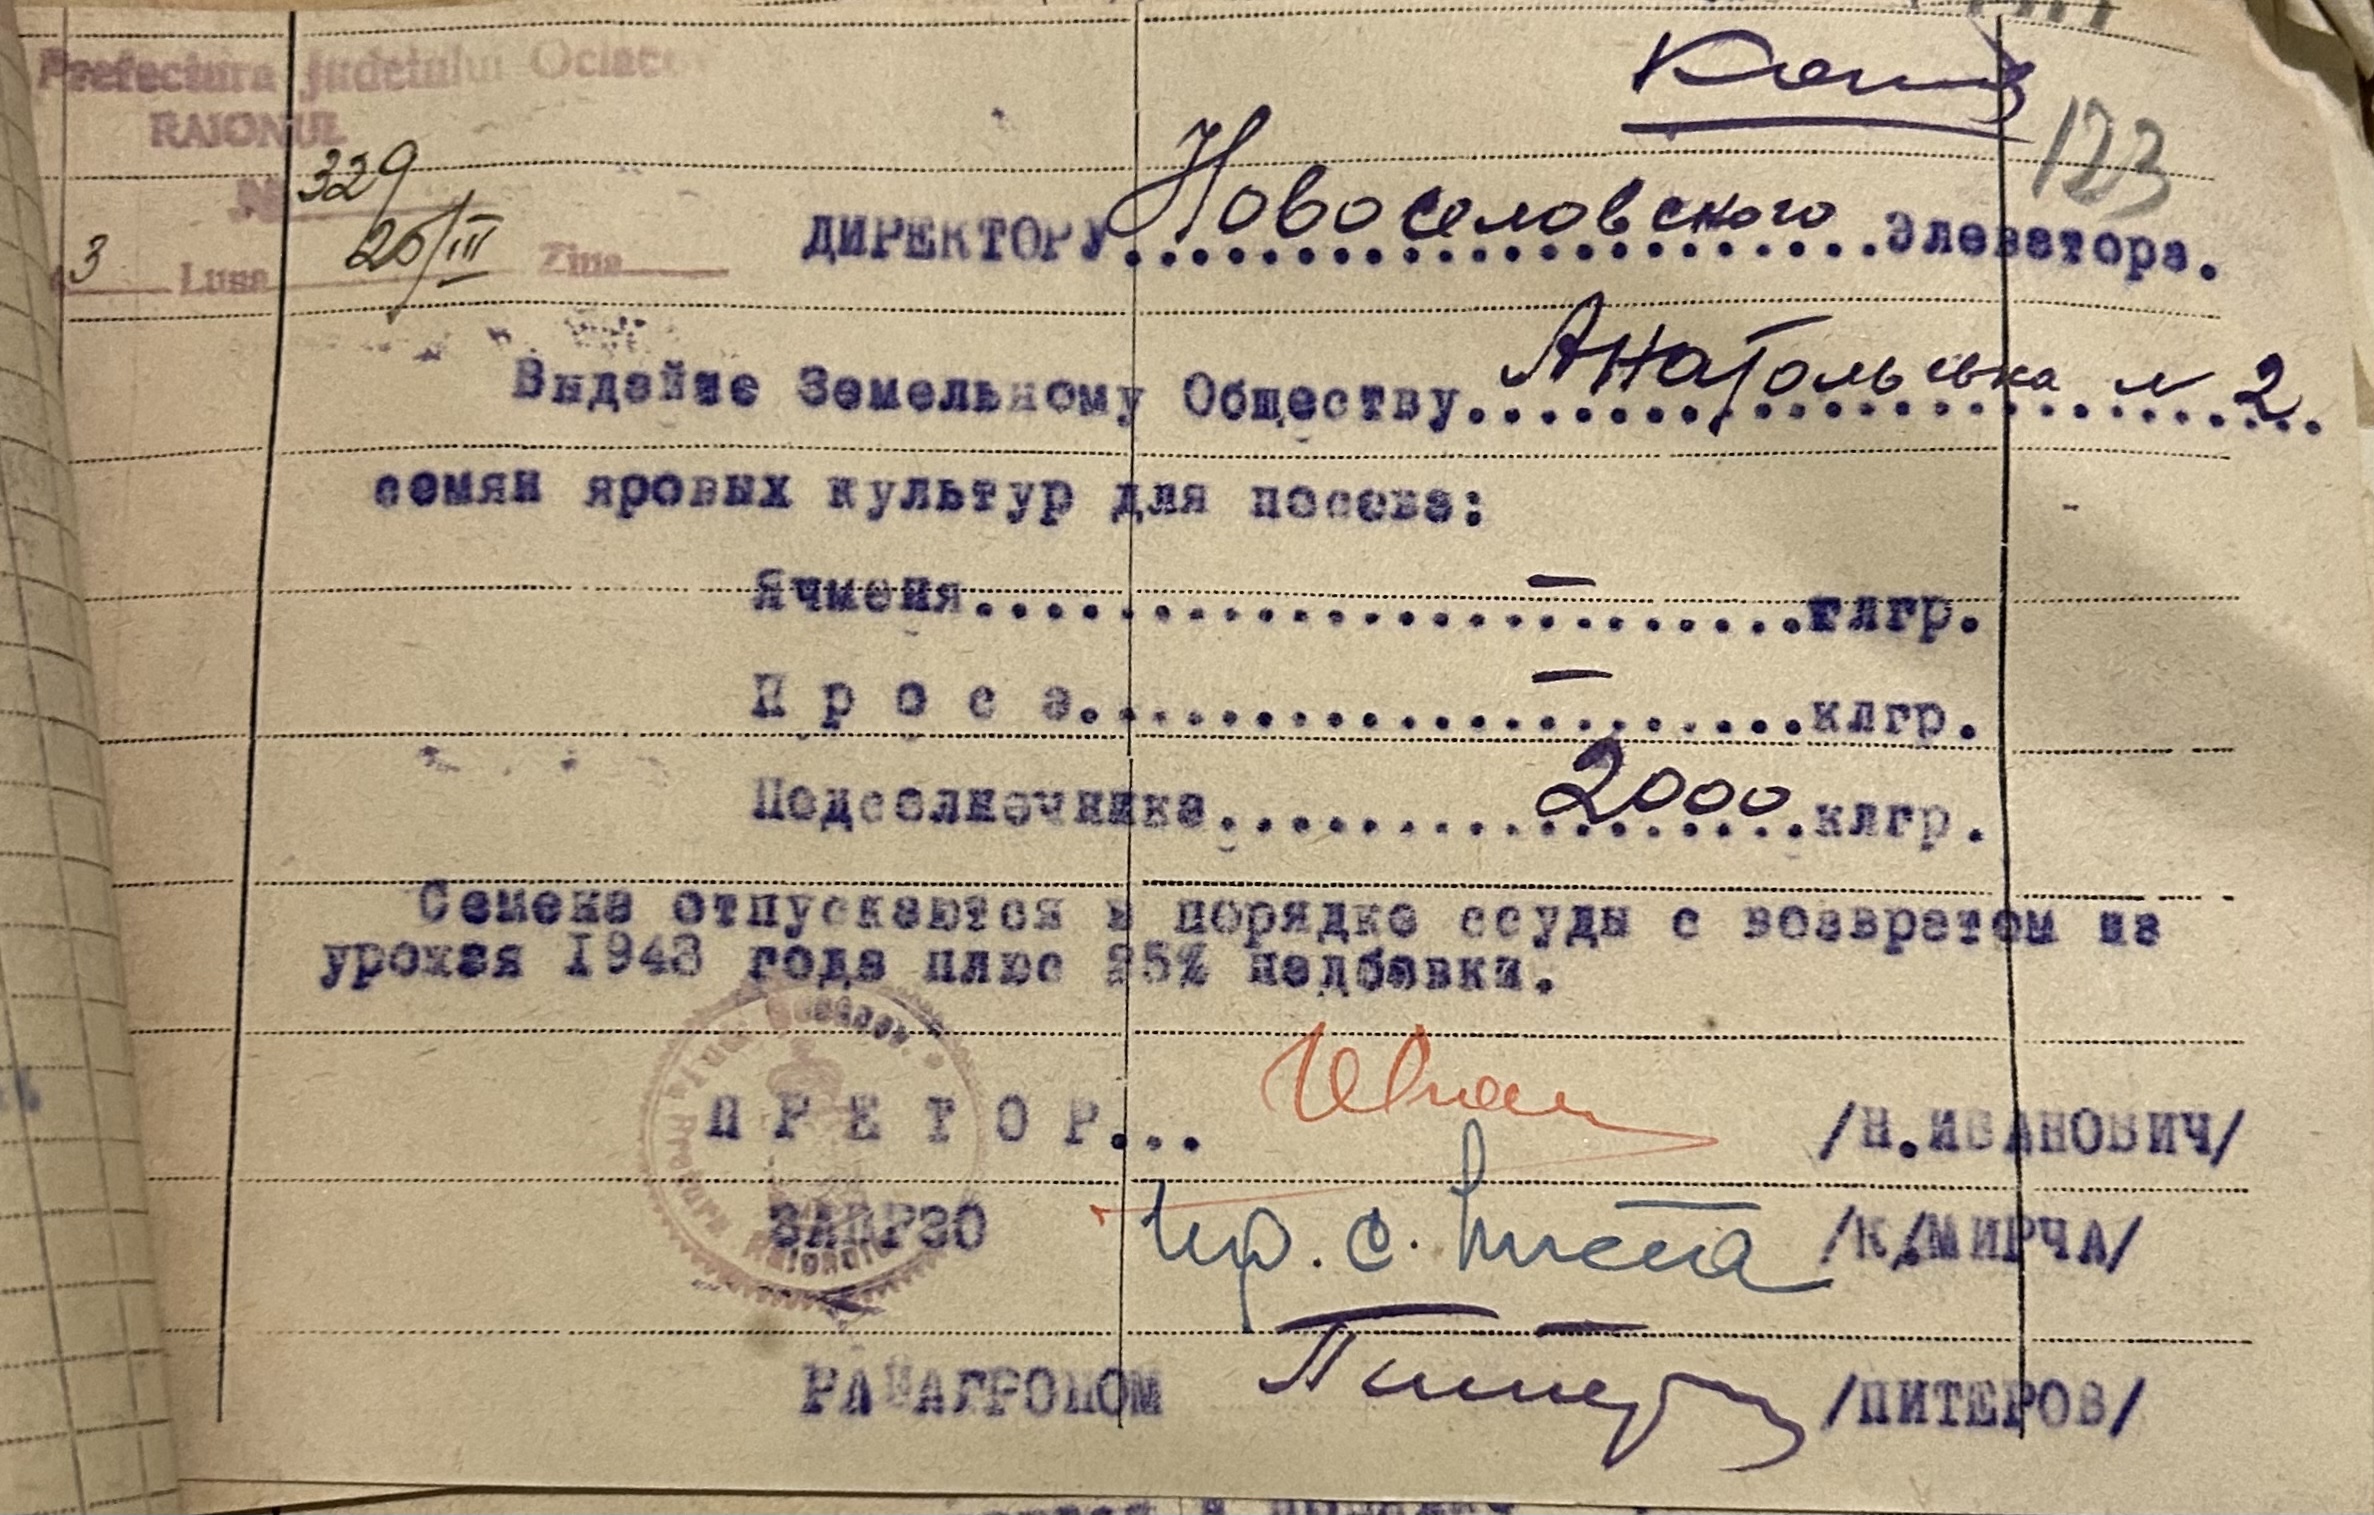 Prefectura Judetului Ociacov
RAIONUL
Копия
123
№ 329
3 Luna 26/III Ziua
ДИРЕКТОРУ Новоселовского Элеватора.
Выдайте Земельному Обществу Анатольевка № 2.
семян яровых культур для посева:
Ячменя........ – ........клгр.
П р о с а........ – ........клгр.
Подсолнечника........ 2000 ........клгр.
Семена отпускаются в порядке ссуды с возвратом из
урожая 1943 года плюс 25% надбавки.
П Р Е Т О Р... /Н.ИВАНОВИЧ/
ЗАВРЗО /К.МИРЧА/
РАЙАГРОНОМ Питеров /ПИТЕРОВ/